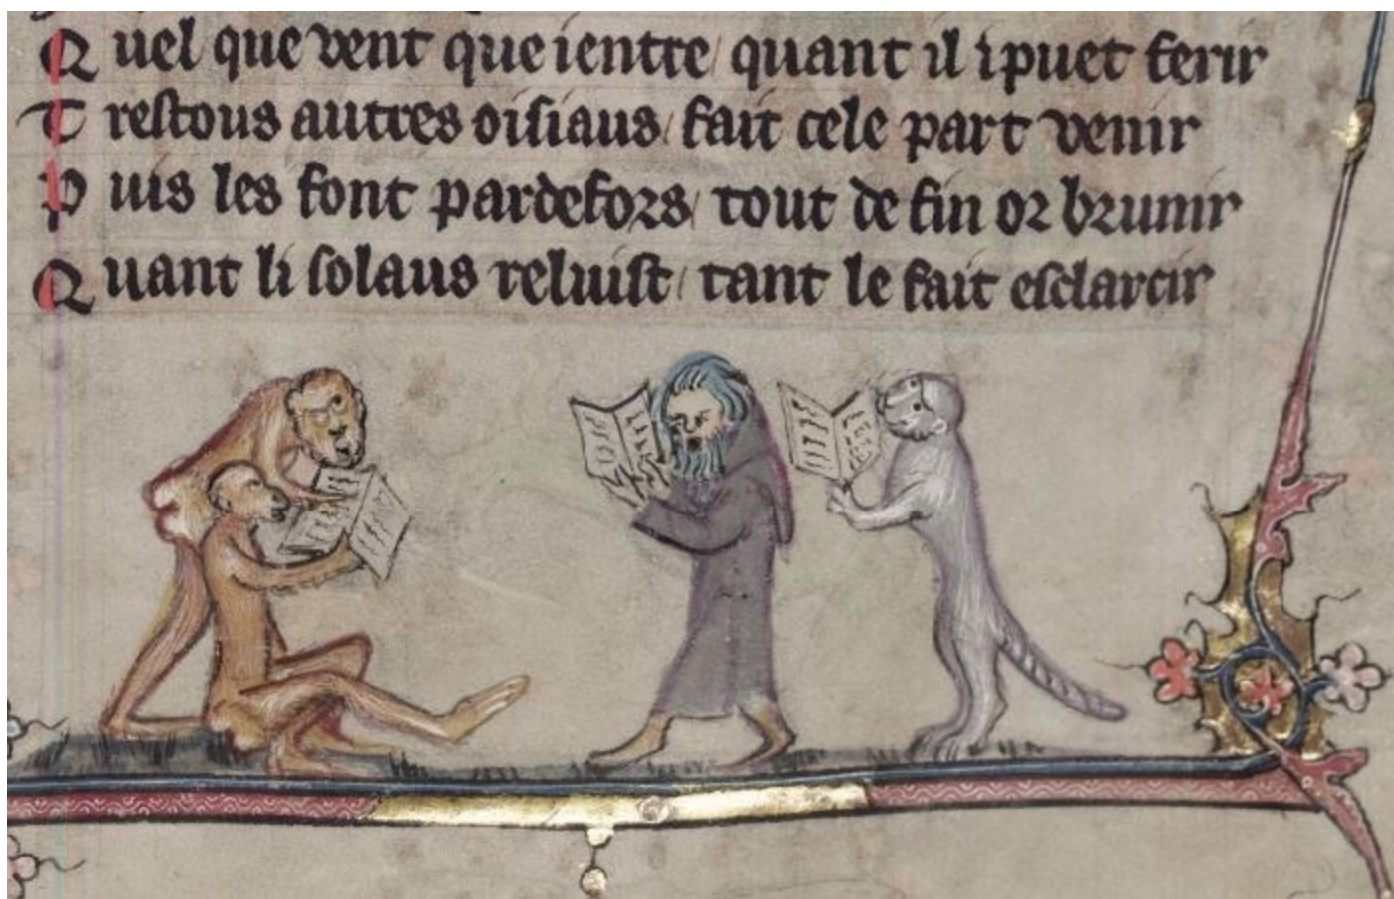 Quel que vent que ientre / quant il ipuet ferir
Trestous autres oisiaus / fait cele part venir
Puis les font pardefors / tout de fin or brunir
Quant li solaus reluist / tant le fait esclarcir